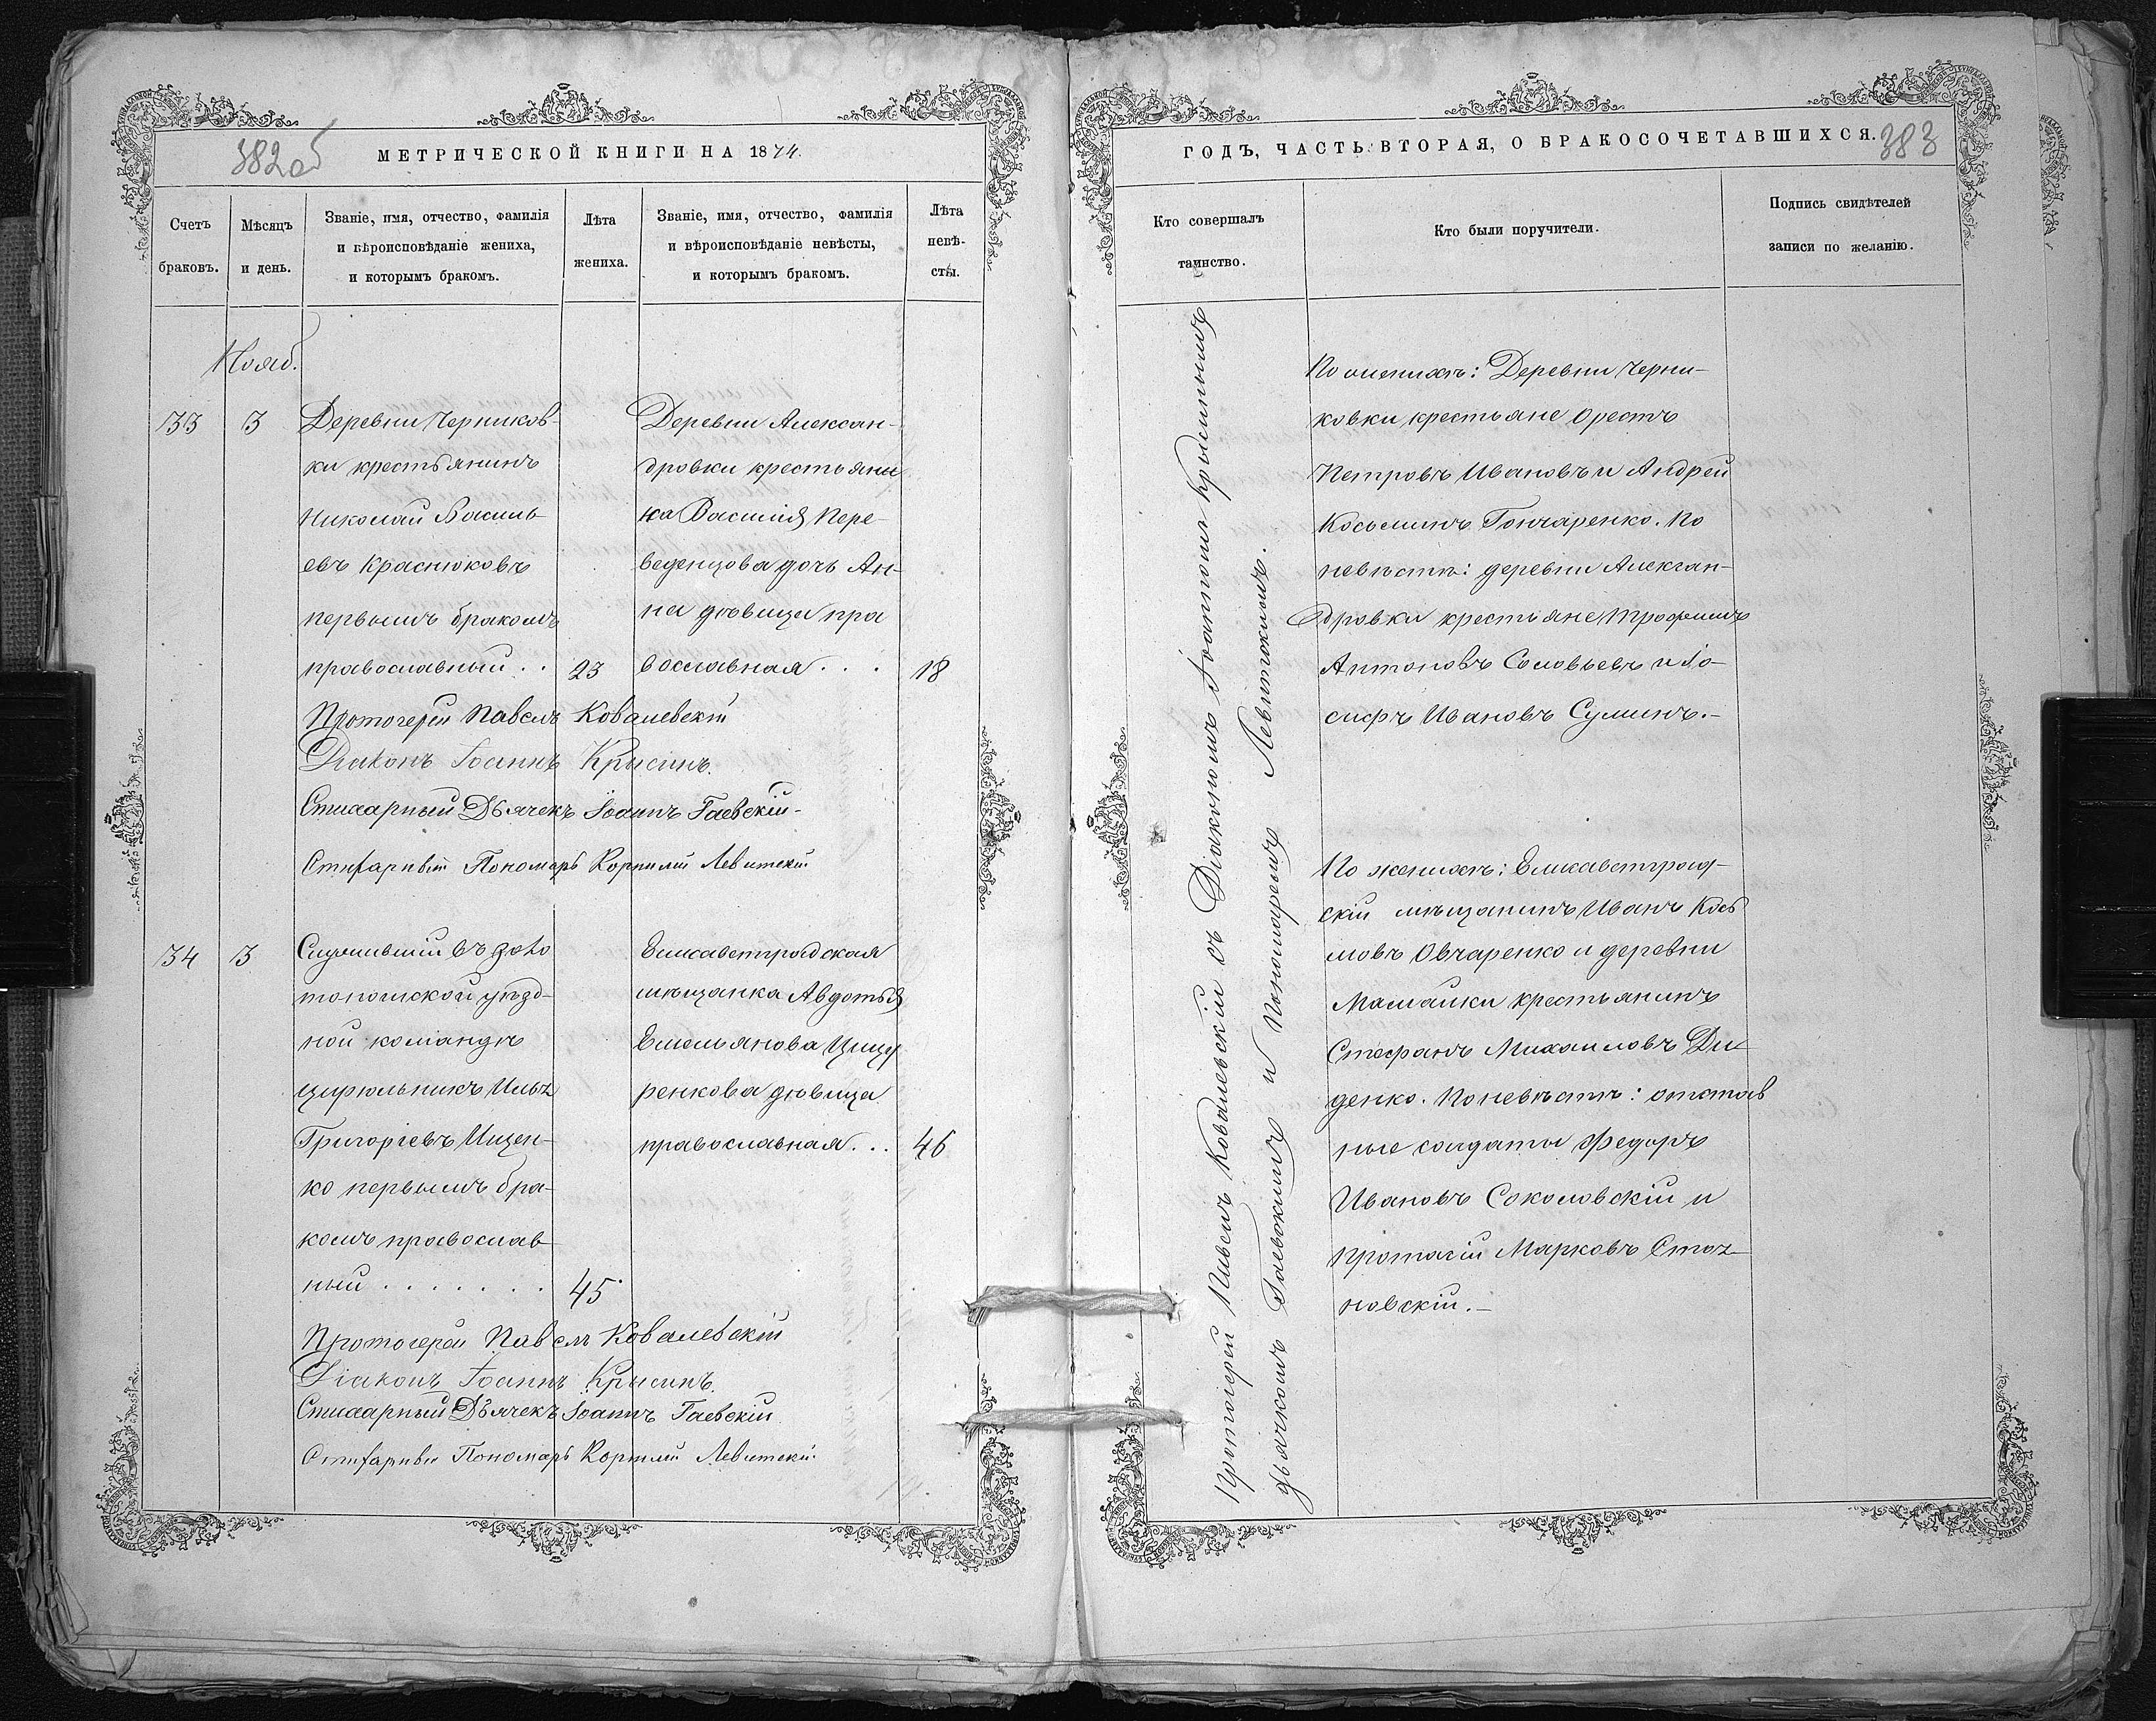 382об
МЕТРИЧЕСКОЙ КНИГИ НА 1874.
Счетъ
браковъ.
Мѣсяцъ
и день.
Званіе, имя, отчество, фамилія
и вѣроисповѣданіе жениха,
и которымъ бракомъ.
Лѣта
жениха.
Званіе, имя, отчество, фамилія
и вѣроисповѣданіе невѣсты,
и которымъ бракомъ.
Лѣта
невѣ-
сты.
Нояб.
33
3
Деревни Черников-
ки крестьянинъ
Николай Василь-
евъ Краснюковъ
первымъ бракомъ
православный . .
23
Деревни Алексан-
дровки крестьяни
на Василія Пере-
веденцова дочь Ан-
на дѣвица пра
вославная . . .
18
Протоіерей Павелъ Ковалевскій
Діаконъ Іоаннъ Крысинъ.
Стихарный Дѣячекъ Іоаннъ Гаевскій.
Стихарный Пономарь Корнилій Левитскій
34
3
Служившій въ золо
тоношской уѣзд-
ной командѣ
цирюльникъ Илья
Григоріевъ Ищен-
ко первымъ бра-
комъ православ
ный . . . . . . .
45
Елисаветградская
мѣщанка Авдотья
Емельянова Цыцу
ренкова дѣвица
православная . . .
46
Протоіерей Павелъ Ковалевскій
Діаконъ Іоаннъ Крысинъ.
Стихарный Дѣячекъ Іоаннъ Гаевскій
Стихарный Пономарь Корнилій Левитскій
ГОДЪ, ЧАСТЬ ВТОРАЯ, О БРАКОСОЧЕТАВШИХСЯ.
383
Кто совершалъ
таинство.
Кто были поручители.
Подпись свидѣтелей
записи по желанію.
Протоіерей Павелъ Ковалевскій съ Діакономъ Іоанномъ Крысинымъ
дьячкомъ Гаевскимъ и Пономаремъ Левитскимъ.
По женихѣ: Деревни Черни-
ковки крестьяне Орестъ
Петровъ Ивановъ и Андрей
Косьминъ Гончаренко. По
невѣстѣ: деревни Алексан-
дровки крестьяне Трофимъ
Антоновъ Соловьевъ и Іо-
сифъ Ивановъ Суминъ.-
По женихѣ: Елисаветград-
скій мѣщанинъ Иванъ Косъ
мовъ Овчаренко и деревни
Мамайки крестьянинъ
Стефанъ Михаиловъ Ди
денко. По невѣстѣ: отстав
ные солдаты Федоръ
Ивановъ Соколовскій и
Марковъ
новскій.-